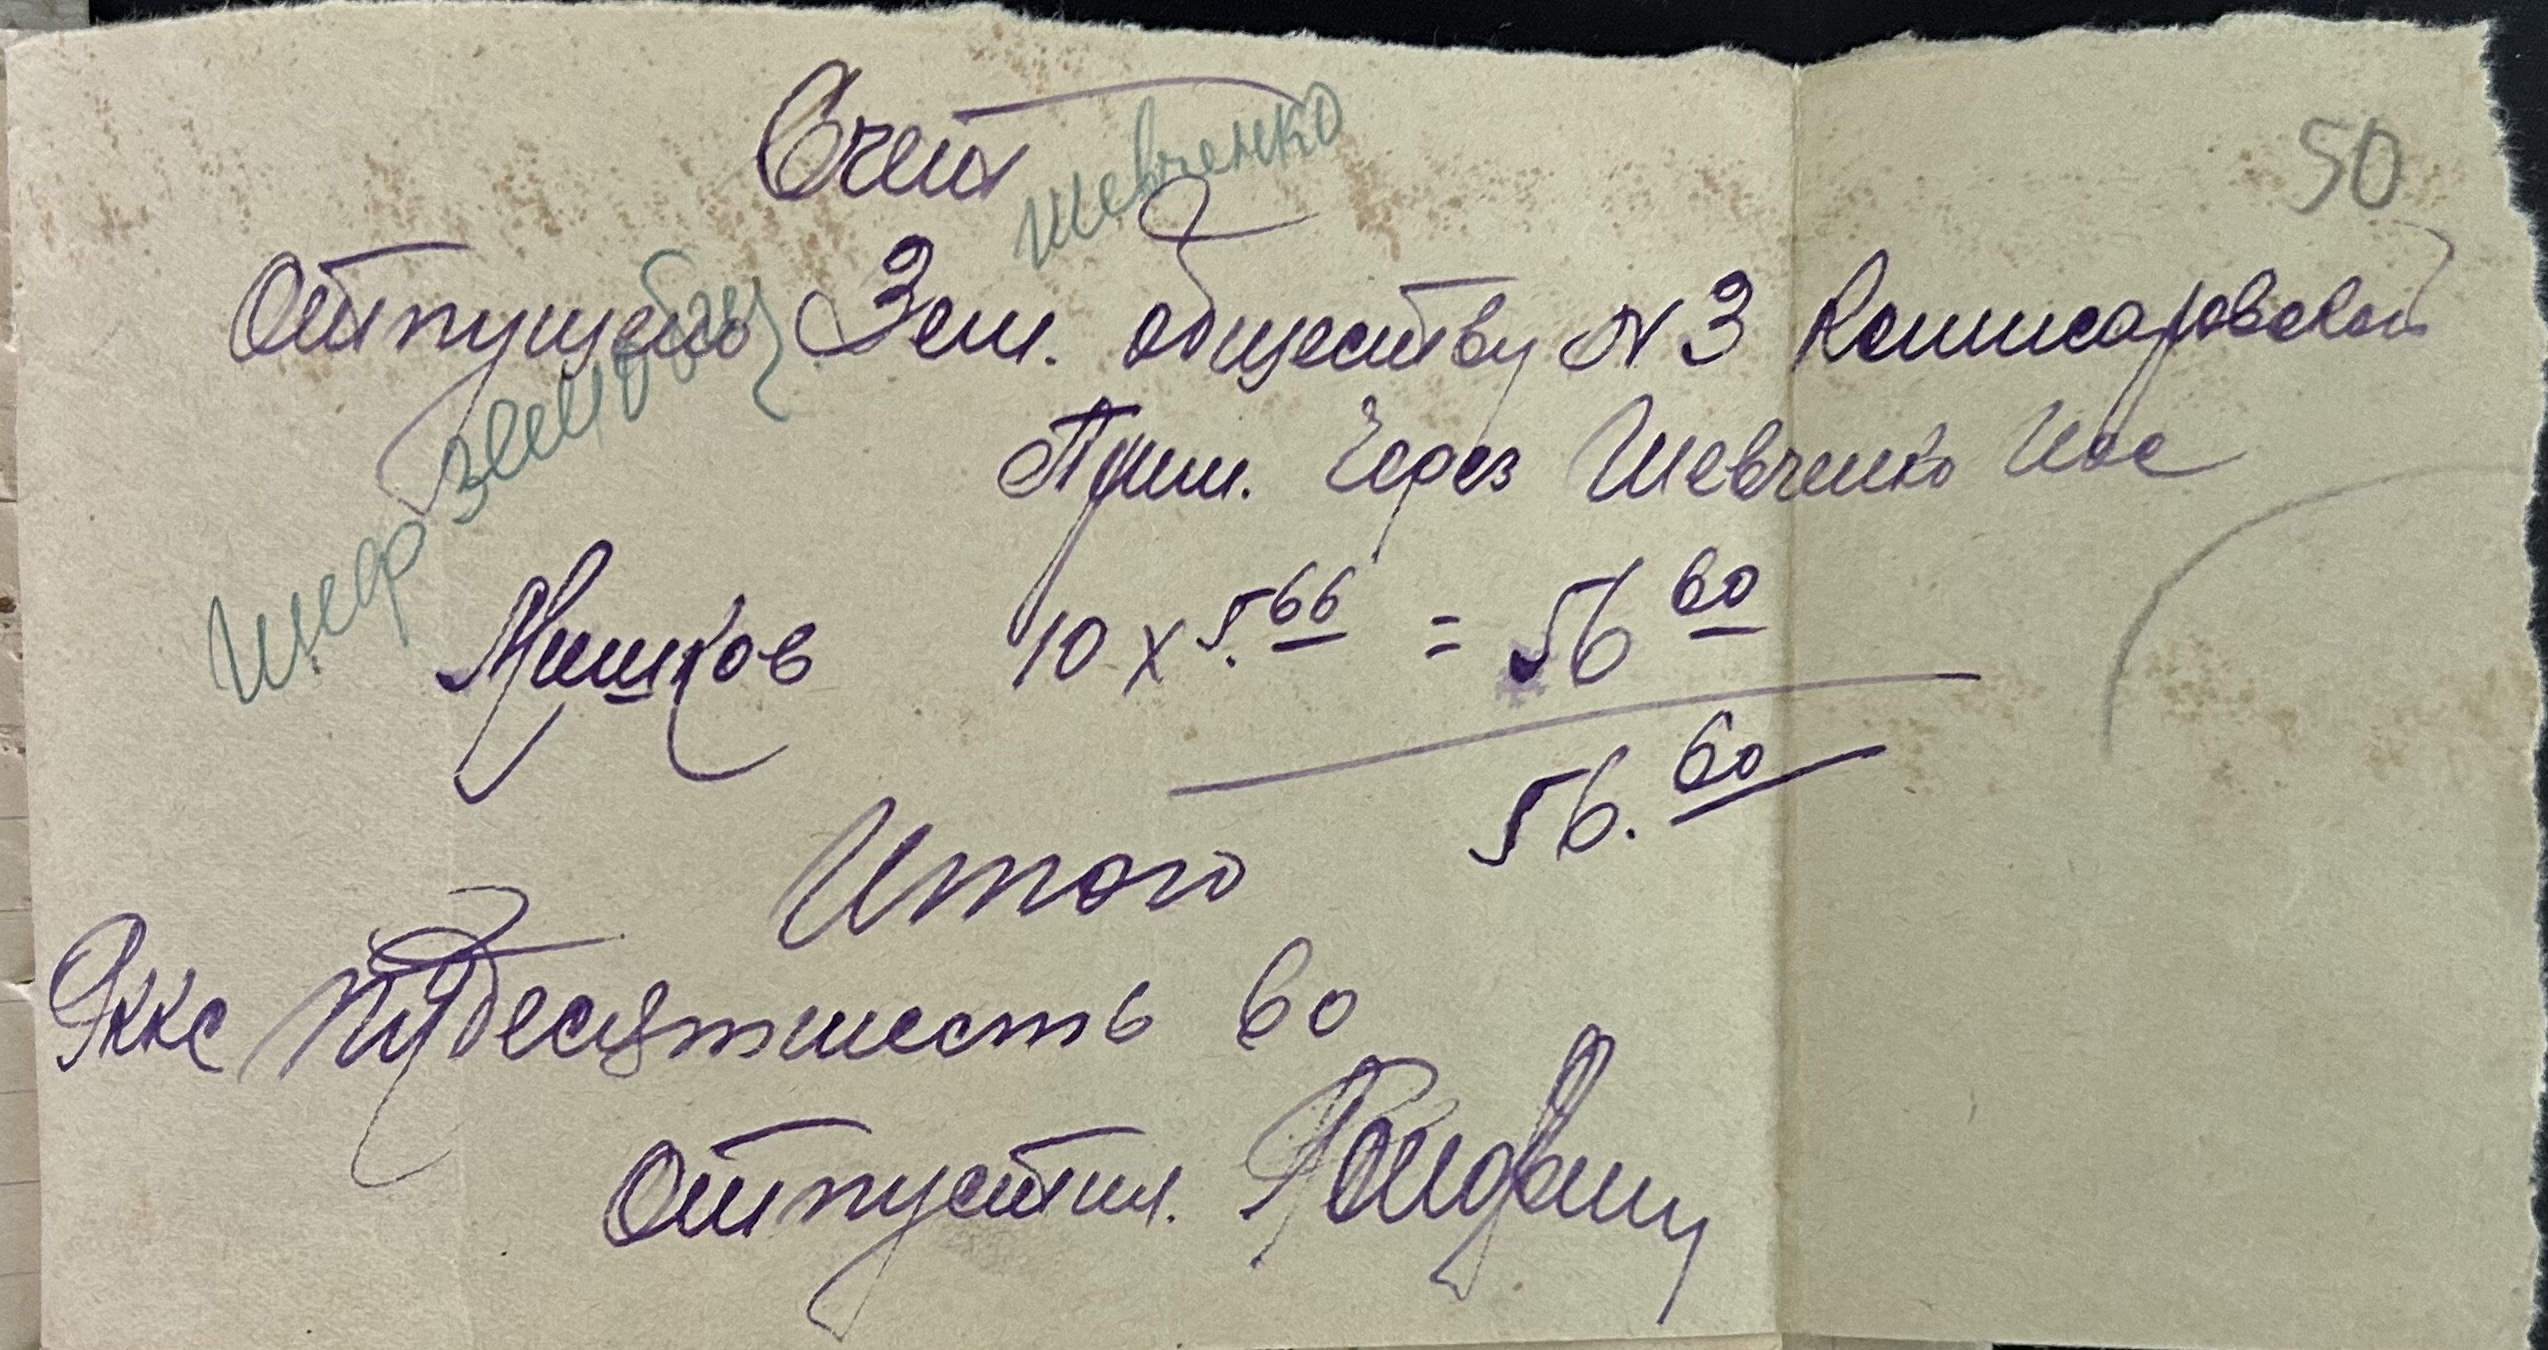 Счет
Шевченко
50
Отпущено Зем. обществу № 3 Комисаровской
Шефземобщ
Прим. Через Шевченко Иос
Мишков 10 х 5.66 = 56 60
56. 60
Итого
пядесятшесть 60
Отпустил.